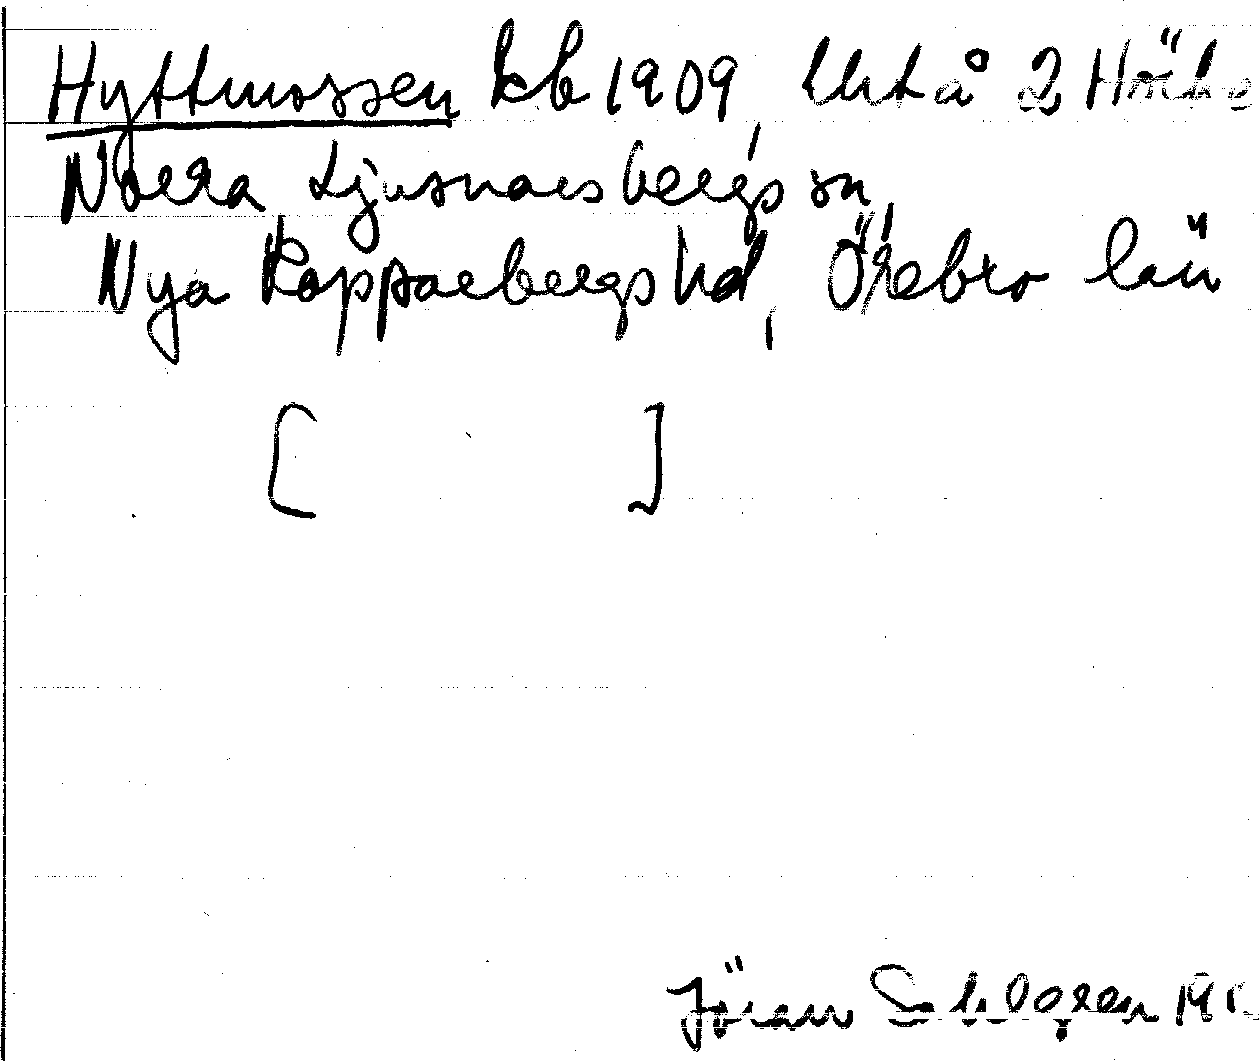 Hyttmossen kb 1909, 2
Norra Ljusnarsbergs sn,
Nya Kopparbergs hd, Örebro län
[ ]
Jöran Sahlgren 19